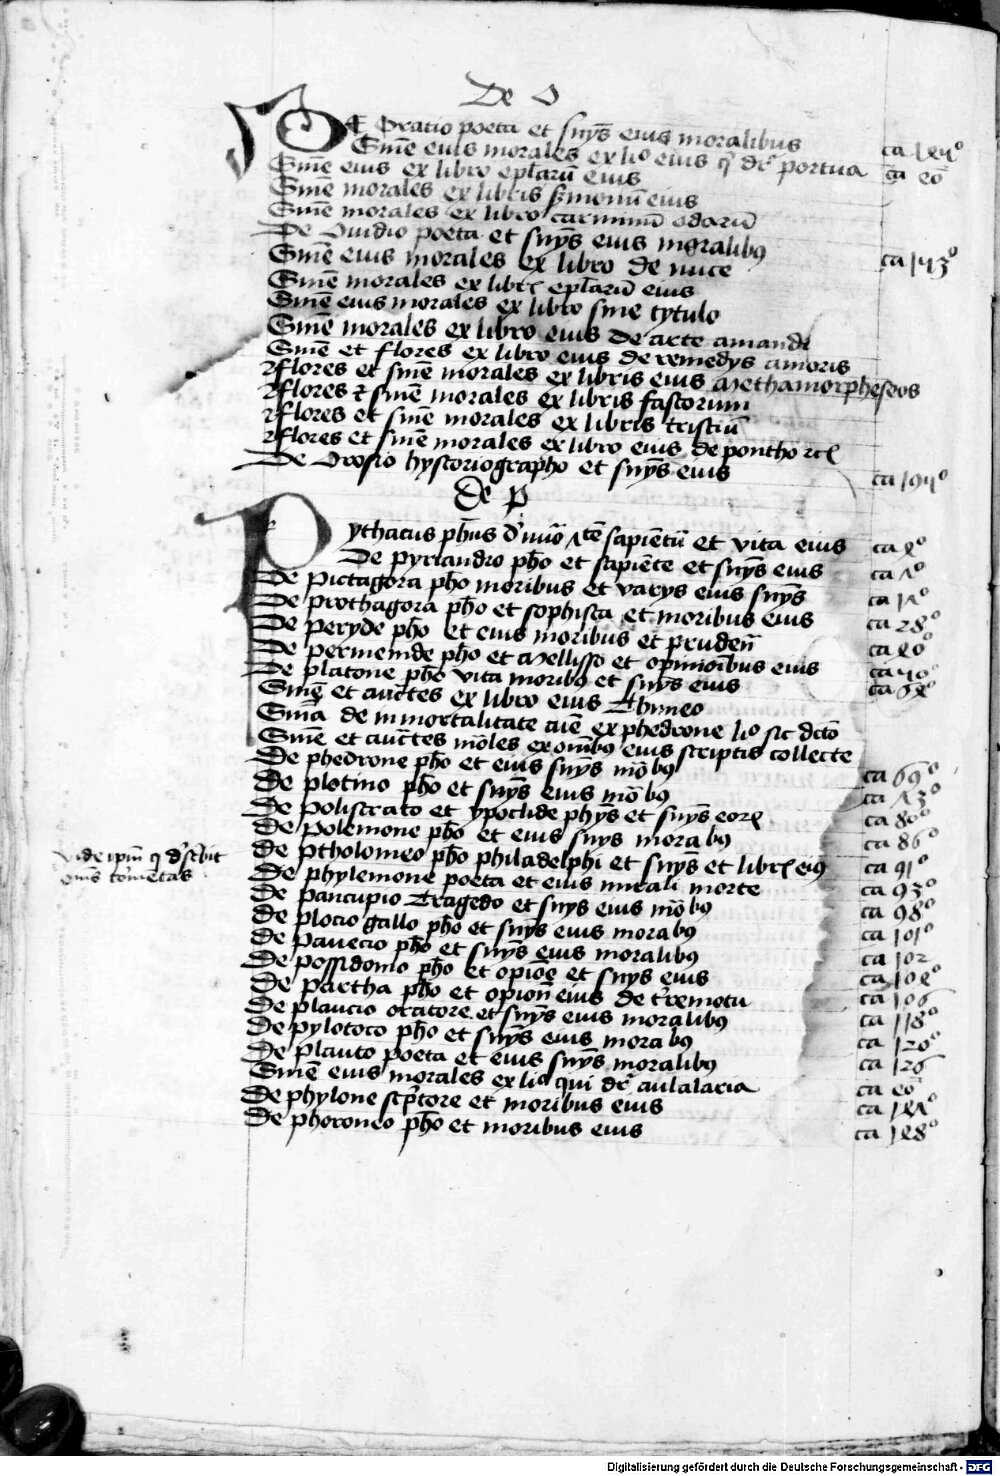 De O
DE Oratio poeta et suīys eius moralibus ca 145°
Suīne eius morales ex liº eius qͥ drͥ portua ca eo
Suīne eius ex libro ep̄larū eius
Suīne morales ex libris sermonū eius
Suīne morales ex libro carminū odarū
De Ouidio poeta et suīys eius moralibꝰ ca 143°
Suīne eius morales ex libro de nuce
Suīne morales ex libro ep̄larū eius
Suīne eius morales ex libro sine tytulo
Suīne morales ex libro eius de arte amandi
Suīne et flores ex libro eius de remedys amoris
Flores et suīne morales ex libris eius Methamorpheseos
Flores et suīne morales ex libris fastorum
Flores et suīne morales ex libris tristiū
Flores et suīne morales ex libro eius de pontho
De Orosio hystoriographo et suīys eius ca 195°
de p
Pythacus ph̄us sapientū et vita eius ca 2°
De pyriandro ph̄o et sapiēte et suīys eius ca 7°
De pictagora ph̄o moribus et varys eius suīys ca 17°
De prothagora ph̄o et sophista et moribus eius ca 28°
De peryde ph̄o et eius moribus et pruden̄ ca 20°
De permenide ph̄o et Mellisso et opinioībus eius ca 40°
De platone ph̄o vita moribꝰ et suīys eius ca 62°
Suīne et auctes ex libro eius Thimeo
Suīa de inmortalitate aīe ex phedrone liº sic dcto
Suīne et auctes mōles ex oībꝰ eius scriptis collecte
De phedrone ph̄o et eius suīys mōbꝰ ca 69°
De plotino ph̄o et suīys eius mōbꝰ ca 73°
De polistrato et ypoclide ph̄ys et suīys eorꝝ ca 80°
De polemone ph̄o et eius suīys morabꝰ ca 86°
De ptholomeo ph̄o philadelphi et suīys et librͥ eiꝰ ca 91°
vide ipm̄ qͥ dscͥbit
De phylemone poeta et eius mirali morte ca 93°
De pancupio Tragedo et suīys eius mōbꝰ ca 98°
De plocio gallo ph̄o et suīys eius morabꝰ ca 101°
De panecio ph̄o et suīys eius moralibꝰ ca 102
De possidonio ph̄o et opiōe et suīys eius ca 102°
De partha ph̄o et opioni eius de tremotu ca 106°
De plaucio oratore et suīys eius moralibꝰ ca 118°
De pylotoco ph̄o et suīys eius morabꝰ ca 120°
De plauto poeta et eius suīys moralibꝰ ca 126
Suīne eius morales ex liº qui drͥ aulalaria ca eo
De phylone scptore et moribus eius ca 127°
De phoroneo ph̄o et moribus eius ca 128°
Digitalisierung gefördert durch die Deutsche Forschungsgemeinschaft - DFG